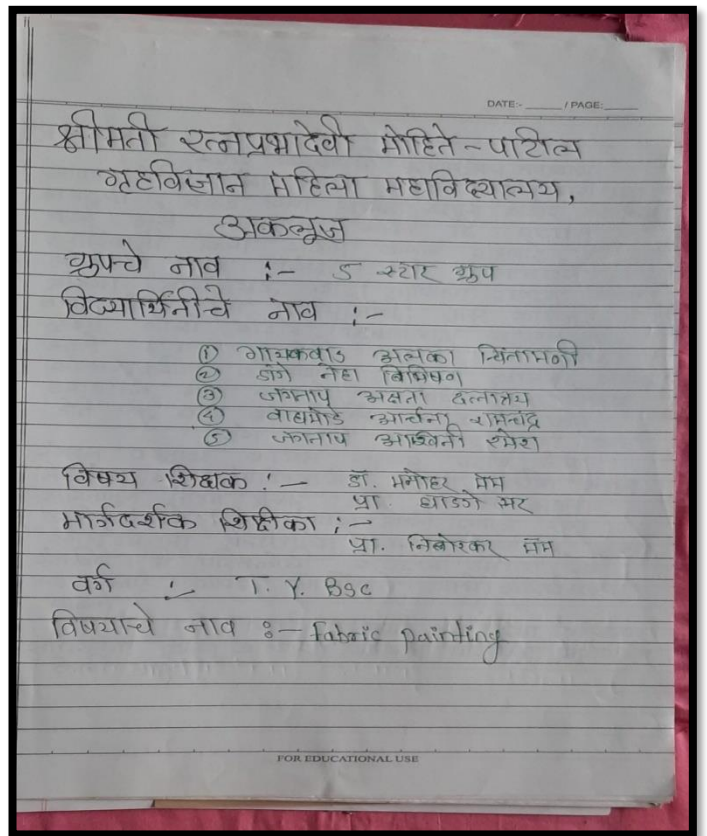 DATE:- ______ / PAGE: ______
श्रीमती रत्नप्रभादेवी मोहिते - पाटील
गृहविज्ञान महिला महाविद्यालय,
अकलूज
ग्रुपचे नाव :- 5 स्टार ग्रुप
विद्यार्थिनीचे नाव :-
① गायकवाड अलका चिंतामणी
② डांगे नेहा बिभिषण
③ जगताप अक्षता दत्तात्रय
④ वाघमोडे आर्चना रामचंद्र
⑤ जगताप आश्विनी रमेश
विषय शिक्षक :- डॉ. मनोहर मॅम
प्रा. धाडगे सर
मार्गदर्शक शिक्षीका :-
प्रा. निंबोरकर मॅम
वर्ग :- T. Y. Bsc
विषयाचे नाव :- fabric painting
FOR EDUCATIONAL USE